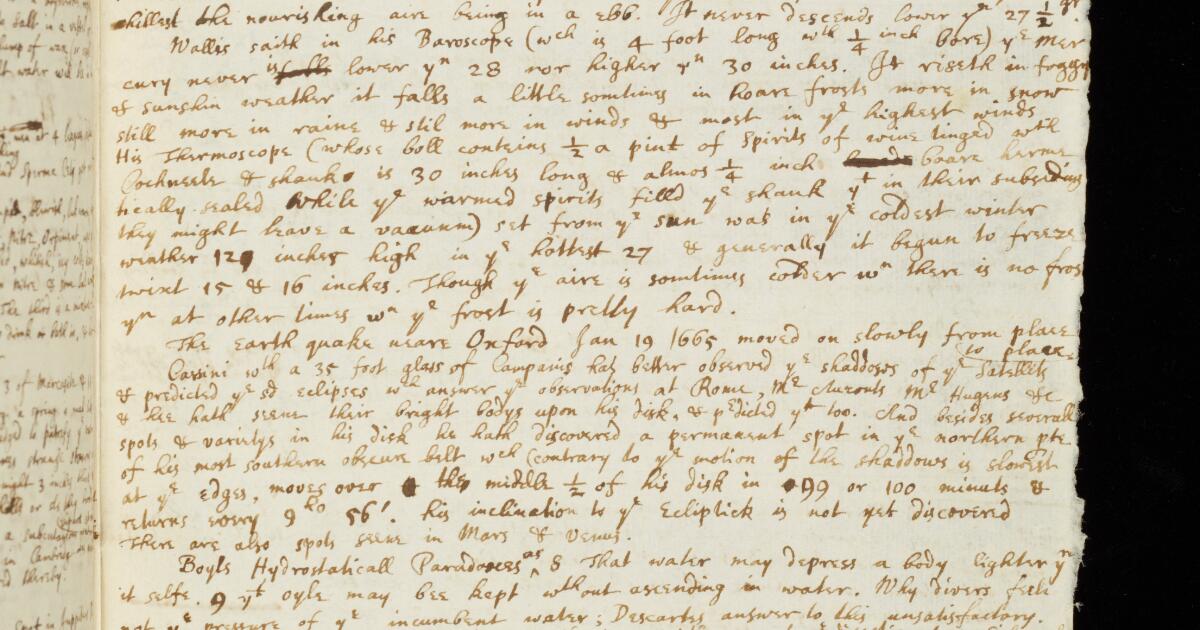 chillest the nourishing aire being in a ebb. It never descends lower yn 27 1/2
Wallis saith in his Baroscope (wch is 4 foot long wth 1/4 inch bore) ye Mer
cury never is falls lower yn 28 nor higher yn 30 inches. It riseth in foggy
& sunshin weather it falls a little somtimes in hoare frosts more in snow
still more in raine & stil more in winds & most in ye highest winds
His Thermoscope (whose boll contains 1/2 a pint of Spirits of wine tinged wth
Cochneele & shanke is 30 inches long & almos 1/4 inch boare herme
tically sealed while ye warmed spirits filld ye shank yt in their subsiding
they might leave a vacuum) set from ye sun was in ye coldest winter
weather 12 inches high in ye hottest 27 & generally it begun to freeze
twixt 15 & 16 inches. Though ye aire is somtimes colder wn there is no fros
yn at other times wn ye frost is pretty hard.
The Earth quake neare Oxford Jan 19 1665 moved on slowly from place
to place.
Cassini wth a 35 foot glass of Campanis hath better observed ye shaddows of ye Satellits
& predicted ye sd eclipses wch answer ye observations at Rome, Mr Auzouts Mr Hugens &c
& hee hath seene their bright bodys upon his disk, & pedicted ym too. And besides severall
spots & varietys in his disk he hath discovered a permanent spot in ye northern pte
of his most southern obscure belt wch (contrary to ye motion of the shaddows is slowest
at ye edges, moves over the middle 1/2 of his disk in 99 or 100 minuts &
returns every 9ho 56'. his inclination to ye Ecliptick is not yet discovered
There are also spots seene in Mars & Venus.
Boyls Hydrostaticall Paradoxes as 8 That water may depress a body lighter yn
it selfe. 9 yt oyle may bee kept wthout ascending in water. Why divers feele
not ye pressure of ye incumbent water; Descartes answer to this unsatisfactory.